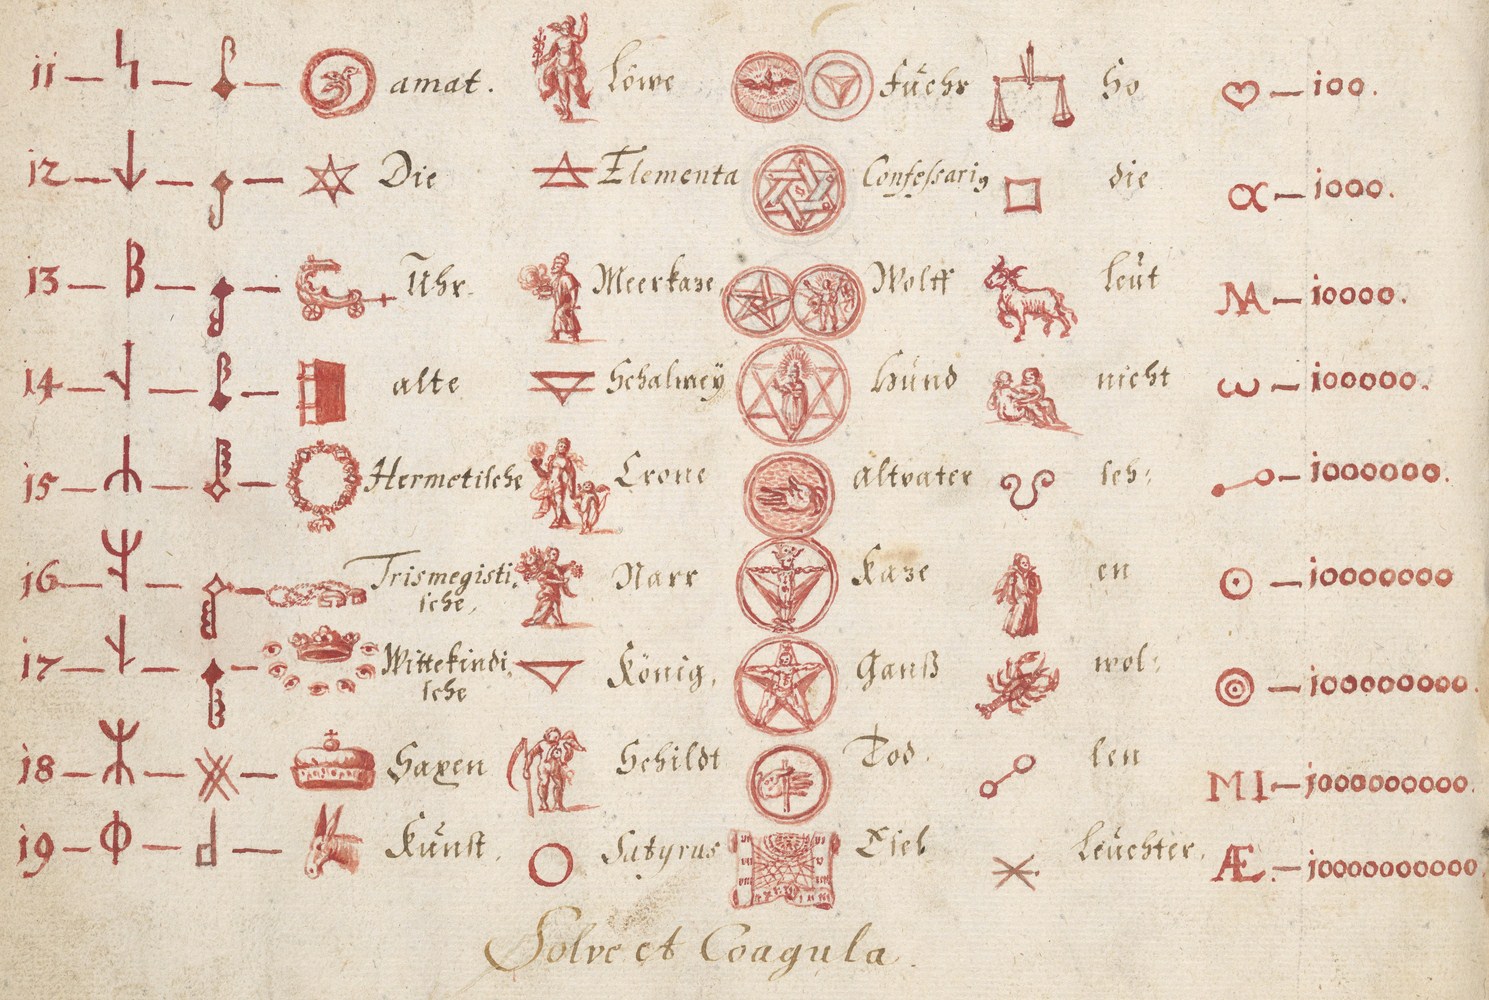 11 amat. Löwe Füchs Ho 100.
12 Die Elementa Confessari9 die 1000.
13 Uhr. Meerkaze, Wolff leüt MA 10000.
14 alte Schalmeÿ Hünd nicht ω 100000.
15 Hermetische Crone Altvater seh: 1000000.
16 Trismegisti: Narr Kaze en 10000000
sche,
17 Wittekindi: König, Ganß wol: 100000000.
sche
18 Saxen Schildt Tod. len MI 1000000000.
19 Künst. Satyrus Esel leüchter. Æ. 10000000000
Solve et Coagula.